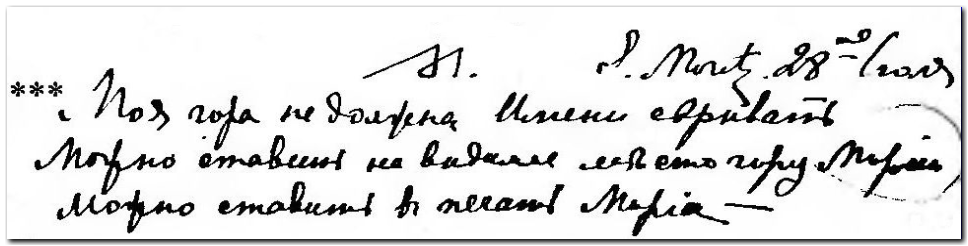 S. Moritz 28го Іюля
*** Моя гора не должна Имени скрывать
Можно ставить на видимое мѣсто гору Марія
Можно ставить в печать Марія —